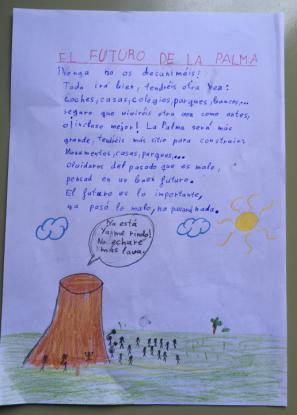 EL FUTURO DE LA PALMA
¡Venga no os desaniméis!
Todo irá bien, tendréis otra vez:
coches, casas, colegios, parques, bancos...
seguro que viviréis otra vez como antes,
o ¡incluso mejor! La Palma será más
grande, tendréis más sitio para construir:
Monumentos, casas, parques,...
Olvidaros del pasado que es malo,
pensad en un buen futuro.
El futuro es lo importante,
ya pasó lo malo, no pasará nada.
¡Ya está
Ya ¡me rindo!
No echaré
más lava.